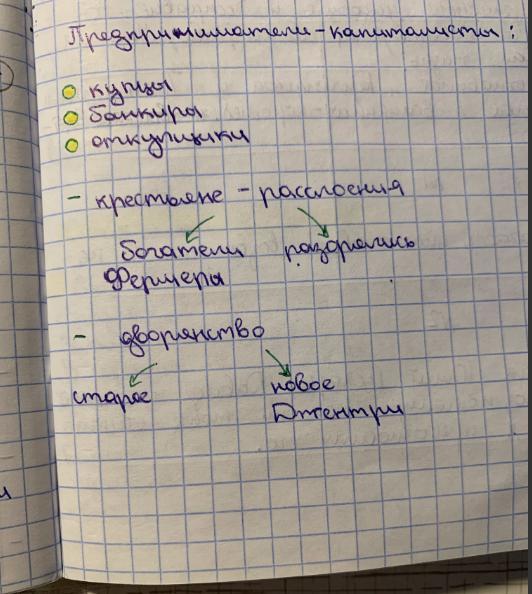 Предприниматели-капиталисты:
купцы
банкиры
откупщики
- крестьяне - расслоения
богатели разорялись
Фермеры
- дворянство
старое новое
Джентри